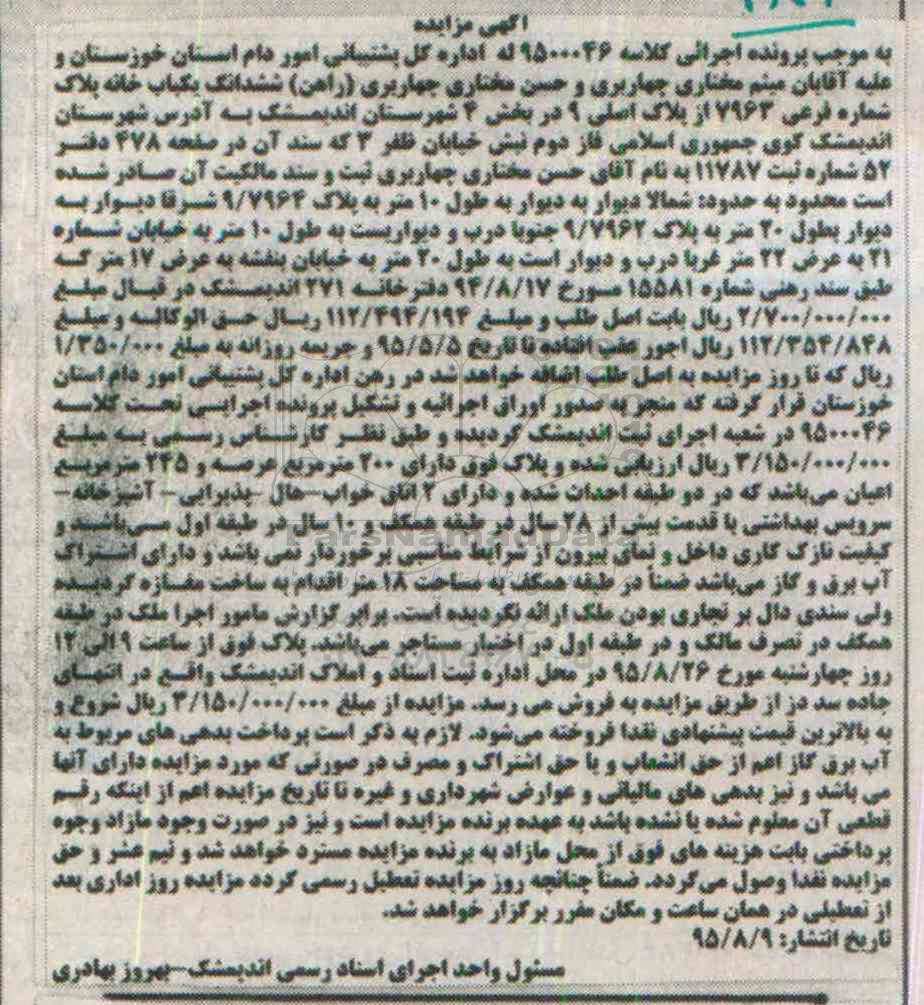 آگهی مزایده
به موجب پرونده اجرائی کلاسه ۹۵۰۰۰۴۶ له اداره کل پشتیبانی امور دام استان خوزستان و
علیه آقایان میثم مختاری چهاربری و حسن مختاری چهاربری (راهن) ششدانگ یکباب خانه پلاک
شماره فرعی ۷۹۶۳ از پلاک اصلی ۹ در بخش ۴ شهرستان اندیمشک به آدرس شهرستان
اندیمشک کوی جمهوری اسلامی فاز دوم نبش خیابان ظفر ۳ که سند آن در صفحه ۴۷۸ دفتر
۵۲ شماره ثبت ۱۱۷۸۷ به نام آقای حسن مختاری چهاربری ثبت و سند مالکیت آن صادر شده
است محدود به حدود: شمالا دیوار به دیوار به طول ۱۰ متر به پلاک ۹/۷۹۶۴ شرقا دیوار به
دیوار بطول ۲۰ متر به پلاک ۹/۷۹۶۲ جنوبا درب و دیواریست به طول ۱۰ متر به خیابان شماره
۲۱ به عرض ۲۲ متر غربا درب و دیوار است به طول ۲۰ متر به خیابان بنفشه به عرض ۱۷ متر که
طبق سند رهنی شماره ۱۵۵۸۱ مورخ ۹۴/۸/۱۷ دفترخانه ۲۷۱ اندیمشک در قبال مبلغ
۲/۷۰۰/۰۰۰/۰۰۰ ریال بابت اصل طلب و مبلغ ۱۱۲/۴۹۴/۱۹۴ ریال حق الوکاله و مبلغ
۱۱۲/۳۵۴/۸۴۸ ریال اجور عقب افتاده تا تاریخ ۹۵/۵/۵ و جریمه روزانه به مبلغ ۱/۳۵۰/۰۰۰
ریال که تا روز مزایده به اصل طلب اضافه خواهد شد در رهن اداره کل پشتیبانی امور دام استان
خوزستان قرار گرفته که منجر به صدور اوراق اجرائیه و تشکیل پرونده اجرایی تحت کلاسه
۹۵۰۰۰۴۶ در شعبه اجرای ثبت اندیمشک گردیده و طبق نظر کارشناس رسمی به مبلغ
۳/۱۵۰/۰۰۰/۰۰۰ ریال ارزیابی شده و پلاک فوق دارای ۲۰۰ مترمربع عرصه و ۲۳۵ مترمربع
اعیان می‌باشد که در دو طبقه احداث شده و دارای ۲ اتاق خواب-هال -پذیرایی- آشپزخانه-
سرویس بهداشتی با قدمت بیش از ۲۸ سال در طبقه همکف و ۱۰ سال در طبقه اول می‌باشد و
کیفیت نازک کاری داخل و نمای بیرون از شرایط مناسبی برخوردار نمی باشد و دارای اشتراک
آب برق و گاز می‌باشد ضمناً در طبقه همکف به مساحت ۱۸ متر اقدام به ساخت مغازه گردیده
ولی سندی دال بر تجاری بودن ملک ارائه نکردیده است. برابر گزارش مامور اجرا ملک در طبقه
همکف در تصرف مالک و در طبقه اول در اختیار مستاجر می‌باشد. پلاک فوق از ساعت ۹ الی ۱۲
روز چهارشنبه مورخ ۹۵/۸/۲۶ در محل اداره ثبت اسناد و املاک اندیمشک واقع در انتهای
جاده سد دز از طریق مزایده به فروش می رسد. مزایده از مبلغ ۳/۱۵۰/۰۰۰/۰۰۰ ریال شروع و
به بالاترین قیمت پیشنهادی نقدا فروخته می‌شود. لازم به ذکر است پرداخت بدهی های مربوط به
آب برق گاز اعم از حق انشعاب و یا حق اشتراک و مصرف در صورتی که مورد مزایده دارای آنها
می باشد و نیز بدهی های مالیاتی و عوارض شهرداری و غیره تا تاریخ مزایده اعم از اینکه رقم
قطعی آن معلوم شده یا نشده باشد به عهده برنده مزایده است و نیز در صورت وجود مازاد وجوه
پرداختی بابت هزینه های فوق از محل مازاد به برنده مزایده مسترد خواهد شد و نیم عشر و حق
مزایده نقدا وصول می‌گردد. ضمناً چنانچه روز مزایده تعطیل رسمی گردد مزایده روز اداری بعد
از تعطیلی در همان ساعت و مکان مقرر برگزار خواهد شد.
تاریخ انتشار: ۹۵/۸/۹
مسئول واحد اجرای اسناد رسمی اندیمشک-بهروز بهادری